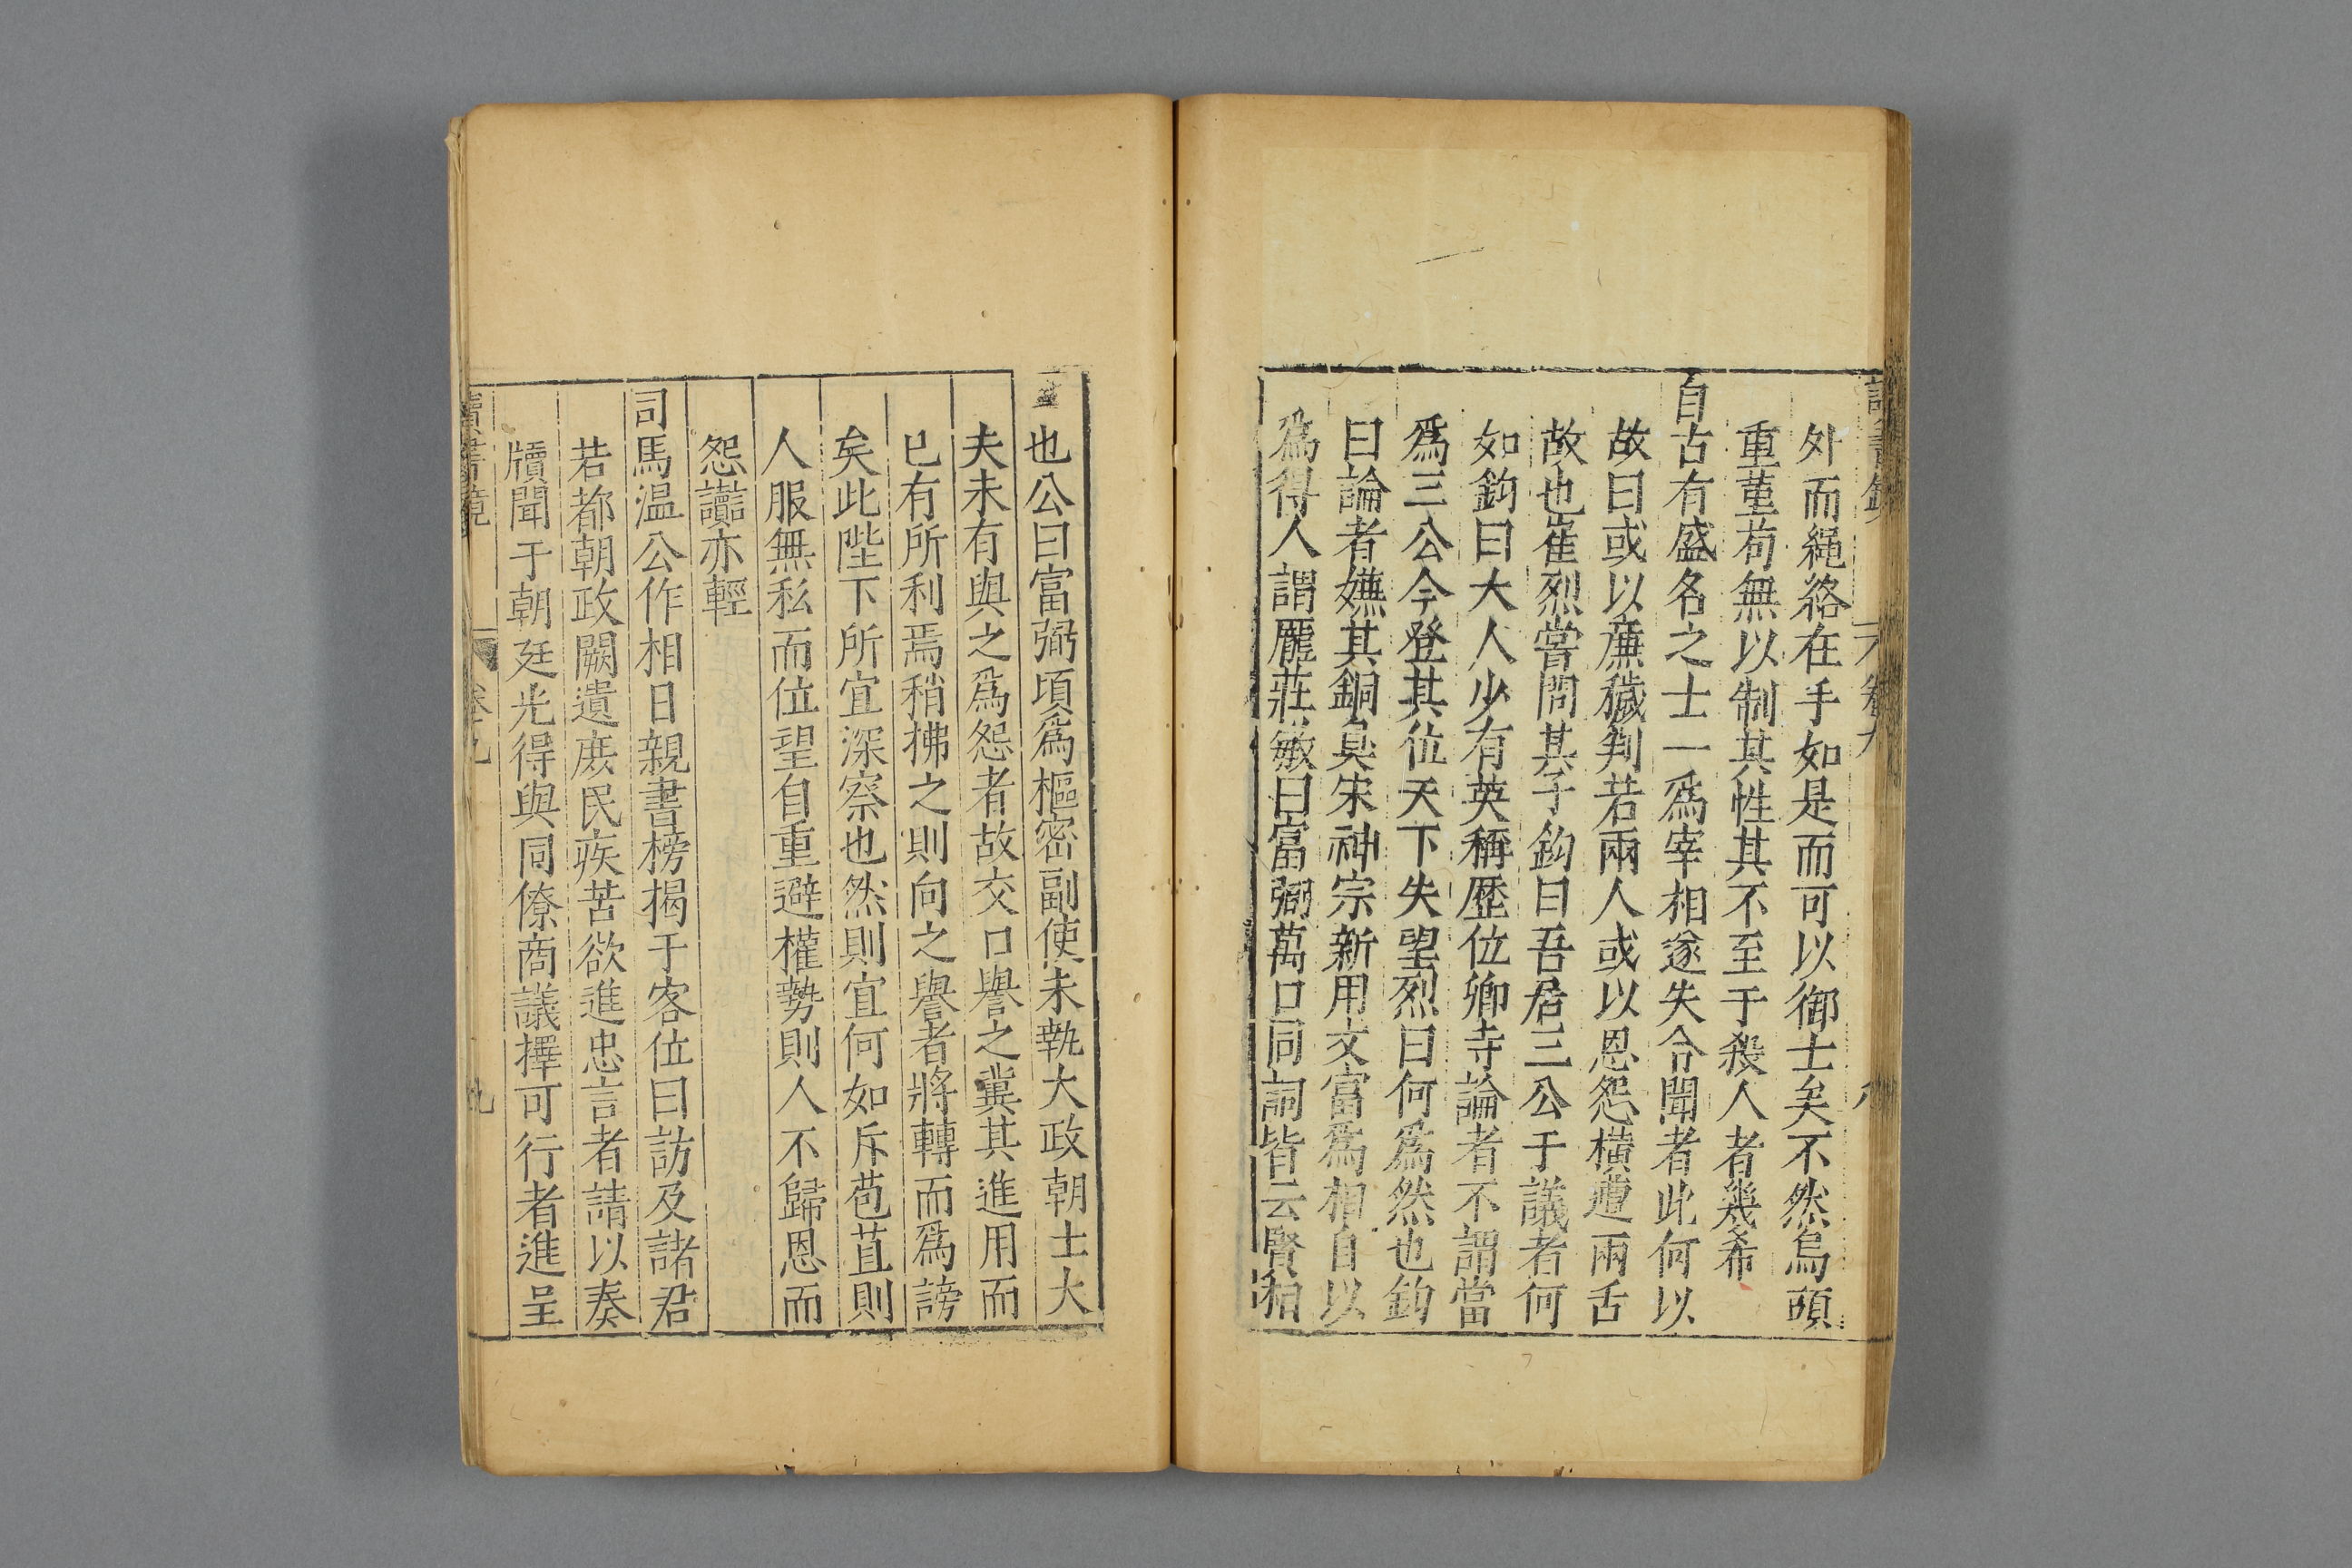 外而繩絡在手如是而可以御士矣不然烏頭
重堇苟無以制其性其不至于殺人者幾希
自古有盛名之士一爲宰相遂失令聞者此何以
故曰或以廉穢判若兩人或以恩怨橫遭兩舌
故也崔烈嘗問其子鈞曰吾居三公于議者何
如鈞曰大人少有英稱歷位卿寺論者不謂當
爲三公今登其位天下失望烈曰何爲然也鈞
曰論者嫌其銅臭宋神宗新用文富爲相自以
爲得人謂龎莊敏曰富弼萬口同詞皆云賢相
也公曰富弼頃爲樞密副使未執大政朝士大
夫未有與之爲怨者故交口譽之冀其進用而
已有所利焉稍拂之則向之譽者將轉而爲謗
矣此陛下所宜深察也然則宜何如斥苞苴則
人服無私而位望自重避權勢則人不歸恩而
怨讟亦輕
司馬温公作相日親書榜揭于客位曰訪及諸君
若都朝政闕遺庻民疾苦欲進忠言者請以奏
牘聞于朝廷光得與同僚商議擇可行者進呈
讀書鏡 卷之九 九